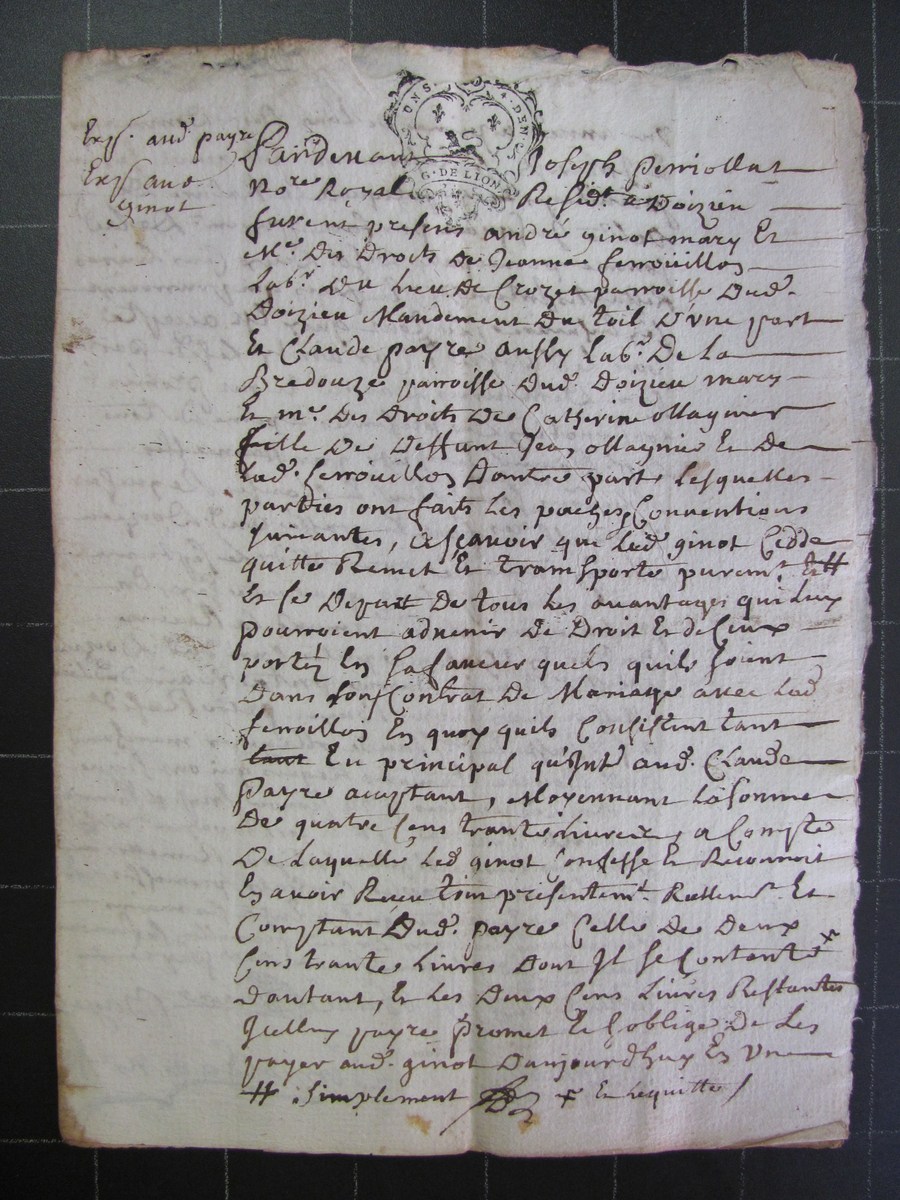 Exp. aud. payre
Exp. aud.
ginot
UNS. 4. DEN
G. DE LION
Pardevant Joseph perriollat
Nore Royal Residt. a Doizieu
furent presens andré ginot mary Et
Me. Des Droits De Jeanne ferroüillon
Labr. Du Lieu De Crozet parroisse Dud.
Doizieu Mandement Du toil D'une part
Et Claude payre aussy Labr. De La
Bredouze parroisse dud. Doizieu mary
Et me. Des Droits De Catherine ollagnier
fille De Deffunt Jean ollagnier Et De
Lad. ferroüillon Dautre part Lesquelles
parties ont faits Les paches Conventions
suivantes, asscavoir que Led. ginot Cedde
quitte Remet Et transporte purem.t Et #
Et se Depart De tous Les avantages qui Luy
pourroient advenir De Droit Et de Ceux
portéz En sa faveur quels quils soient
Dans son Contrat De Mariage avec Lad.
ferroillon En quoy quils Consistent tant
tant En principal qu'Inte aud. Claude
Payre aceptant, Moyennant La somme
De quatre Cens trante Livres, a Compte
De Laquelle Led. ginot Confesse Et Reconnoit
En avoir Receu tout présentemt. Reellemt. Et
Comptant Dud. payre Celle De Deux
Cens trante Livres Dont Il se Contente x
dautant, Et Les Deux Cens Livres Restantes
Icelluy payre promet Et soblige De Les
payer aud. ginot Daujourdhuy En Une
# simplement x En Lequitte /